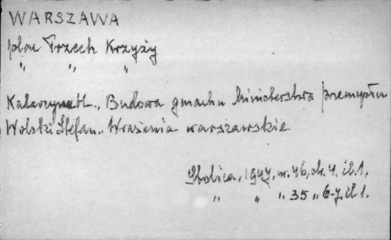 WARSZAWA
plac Trzech Krzyży
" " "
Katarzyna H., Budowa gmachu Ministerstwa Przemysłu
Wolski Stefan., Wrażenia warszawskie
Stolica, 1947, nr. 46, str. 4, il. 1.
" " " 35 " 6-7, il 1.